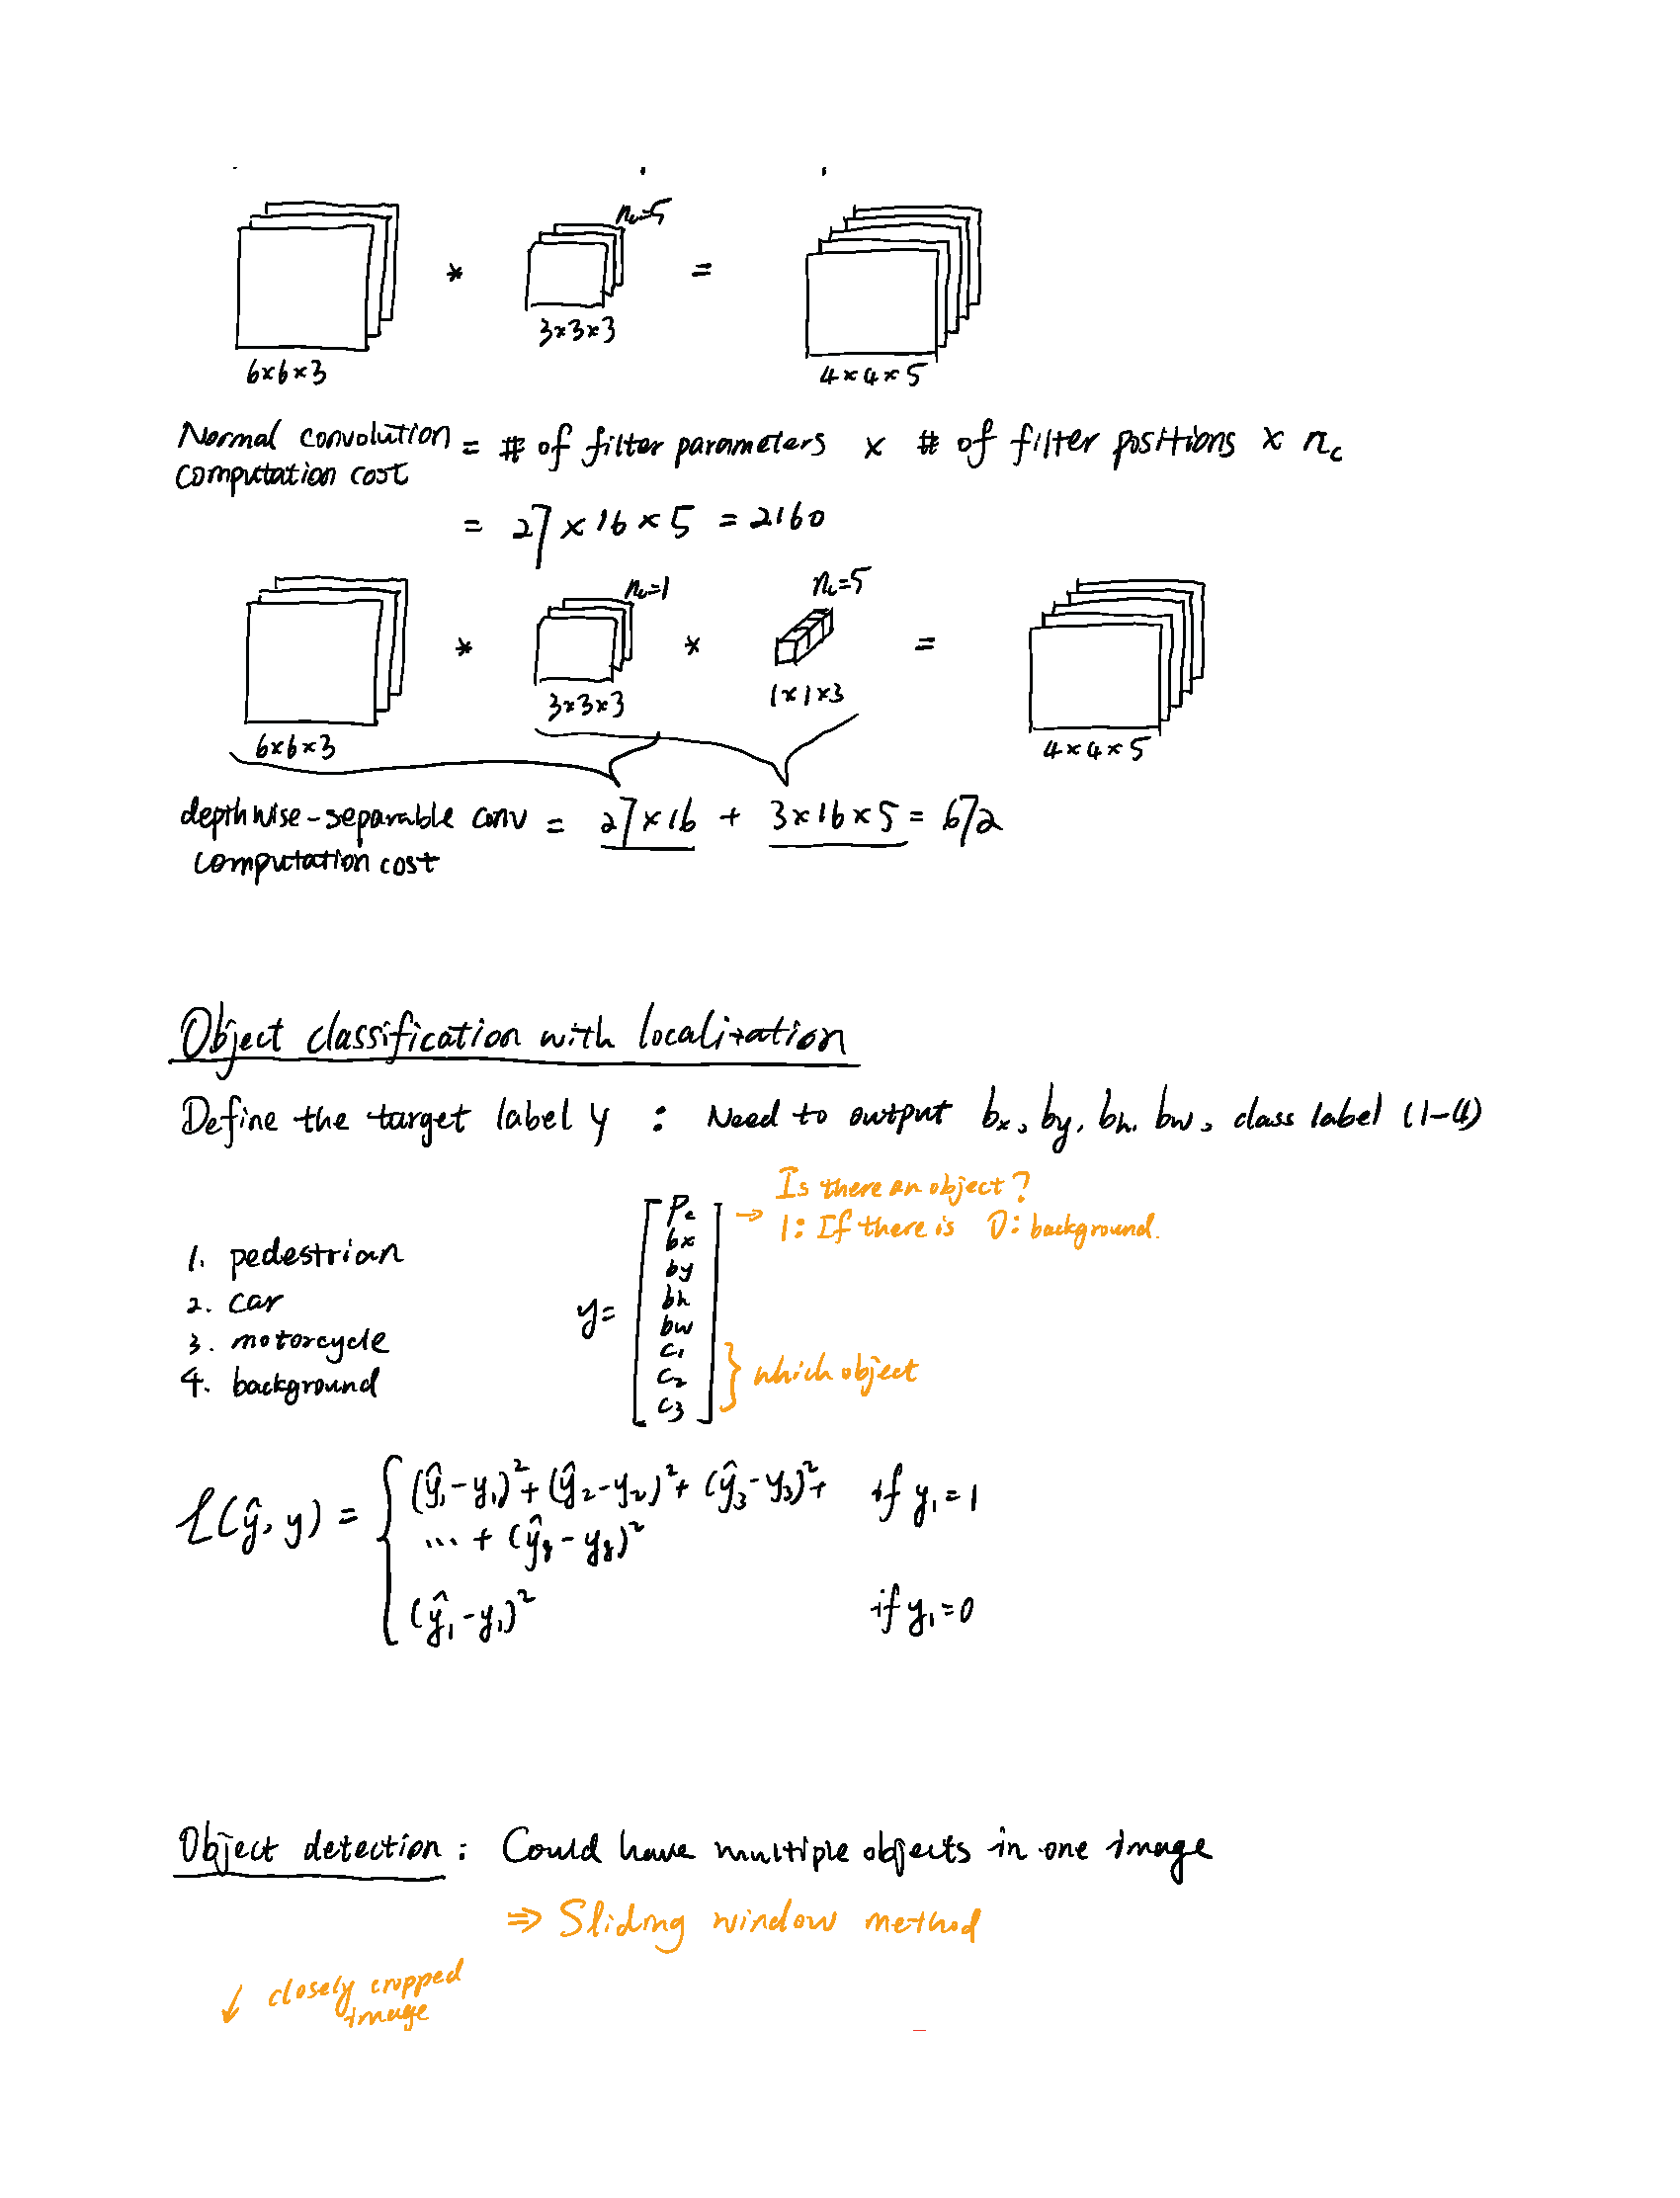 n_c=5
* =
6×6×3 3×3×3 4×4×5
Normal convolution computation cost = # of filter parameters × # of filter positions × n_c
= 27×16×5 = 2160
n_c=1 n_c=5
* * =
6×6×3 3×3×3 1×1×3 4×4×5
depthwise-separable conv computation cost = 27×16 + 3×16×5 = 672
Object classification with localization
Define the target label y : Need to output bx, by, bh, bw, class label (1-4)
Is there an object?
→ 1: If there is 0: background.
1. pedestrian
2. car
3. motorcycle
4. background
y= [
Pc
bx
by
bh
bw
c₁
c₂
c₃
]
} which object
ℒ(ŷ, y) = { (ŷ₁-y₁)²+(ŷ₂-y₂)²+(ŷ₃-y₃)²+ if y₁=1
... + (ŷ₈-y₈)²
(ŷ₁-y₁)² if y₁=0
Object detection : Could have multiple objects in one image
⇒ Sliding window method
↓ closely cropped
image